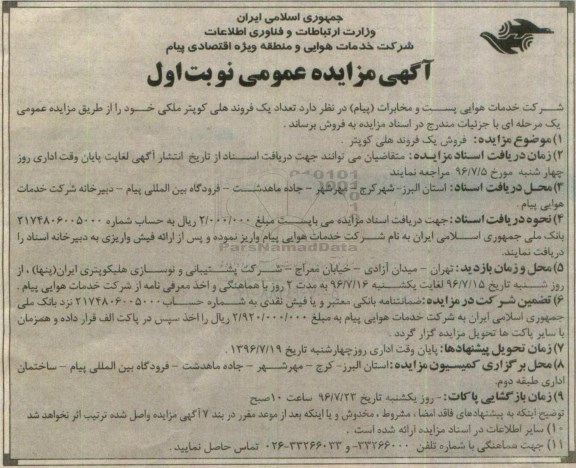 جمهوری اسلامی ایران
وزارت ارتباطات و فناوری اطلاعات
شرکت خدمات هوایی و منطقه ویژه اقتصادی پیام
آگهی مزایده عمومی نوبت اول
شرکت خدمات هوایی پست و مخابرات (پیام) در نظر دارد تعداد یک فروند هلی کوپتر ملکی خود را از طریق مزایده عمومی
یک مرحله ای با جزئیات مندرج در اسناد مزایده به فروش برساند.
۱) موضوع مزایده: فروش یک فروند هلی کوپتر.
۲) زمان دریافت اسناد مزایده: متقاضیان می توانند جهت دریافت اسناد از تاریخ انتشار آگهی لغایت پایان وقت اداری روز
چهار شنبه مورخ ۹۶/۷/۵ مراجعه نمایند
۳) محل دریافت اسناد: استان البرز- شهر کرج - مهرشهر - جاده ماهدشت - فرودگاه بین المللی پیام - دبیرخانه شرکت خدمات
هوایی پیام.
۴) نحوه دریافت اسناد: جهت دریافت اسناد مزایده می بایست مبلغ ۲/۰۰۰/۰۰۰ ریال به حساب شماره ۲۱۷۴۸۰۶۰۰۵۰۰۰
بانک ملی جمهوری اسلامی ایران به نام شرکت خدمات هوایی پیام واریز نموده و پس از ارائه فیش واریزی به دبیرخانه اسناد را
دریافت نمایند.
۵) محل و زمان بازدید: تهران - میدان آزادی - خیابان معراج - شرکت پشتیبانی و نوسازی هلیکوپتری ایران (پنها) ، از
روز شنبه تاریخ ۹۶/۷/۱۵ لغایت یکشنبه ۹۶/۷/۱۶ به مدت ۲ روز با هماهنگی و اخذ معرفی نامه از شرکت خدمات هوایی پیام.
۶) تضمین شرکت در مزایده: ضمانتنامه بانکی معتبر و یا فیش نقدی به شماره حساب ۲۱۷۴۸۰۶۰۰۵۰۰۰ نزد بانک ملی
جمهوری اسلامی ایران به شرکت خدمات هوایی پیام به مبلغ ۲/۹۲۰/۰۰۰/۰۰۰ ریال را اخذ سپس در پاکت الف قرار داده و همزمان
با سایر پاکت ها تحویل مزایده گزار گردد.
۷) زمان تحویل پیشنهادها: پایان وقت اداری روز چهارشنبه تاریخ ۱۳۹۶/۷/۱۹.
۸) محل برگزاری کمیسیون مزایده: استان البرز- کرج - مهرشهر - جاده ماهدشت - فرودگاه بین المللی پیام - ساختمان
اداری طبقه دوم.
۹) زمان بازگشایی پاکات: - روز یکشنبه تاریخ ۹۶/۷/۲۳ ساعت ۱۰ صبح
توضیح اینکه به پیشنهادهای فاقد امضا ، مشروط ، مخدوش و یا اینکه بعد از موعد مقرر در بند ۷ آگهی مزایده واصل شده ترتیب اثر نخواهد شد
۱۰) سایر اطلاعات در اسناد مزایده ارائه شده است.
۱۱) جهت هماهنگی با شماره تلفن ۳۳۲۶۶۰۰۰- و ۳۳۲۶۶۰۳۳-۰۲۶ تماس حاصل نمایید.
ParsNamadData